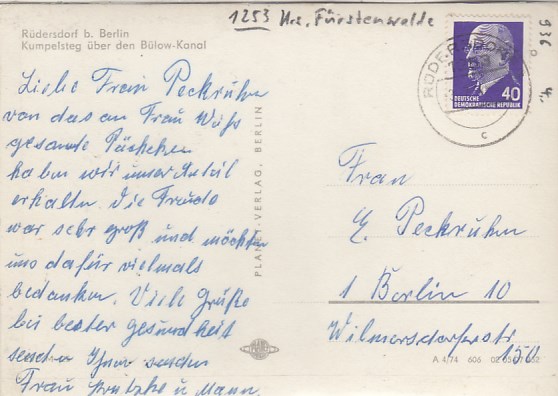 1253 Krs. Fürstenwalde
936
4.
Rüdersdorf b. Berlin
Kumpelsteg über den Bülow-Kanal
RÜDERSDORF
c
40
DEUTSCHE
DEMOKRATISCHE REPUBLIK
Liebe Frau Peckruhn
von das an Frau Wühs
gesamte Päckchen
haben wir unser Anteil
erhalten. Die Freude
war sehr groß und möchten
uns dafür vielmals
bedanken. Viele Grüße
bei bester gesundheit
senden Ihnen senden
Frau u. Mann.
PLANET-VERLAG, BERLIN
PLANET
Frau
E. Peckruhn
1 Berlin 10
Wilmersdorferstr
150
A 4/74 606